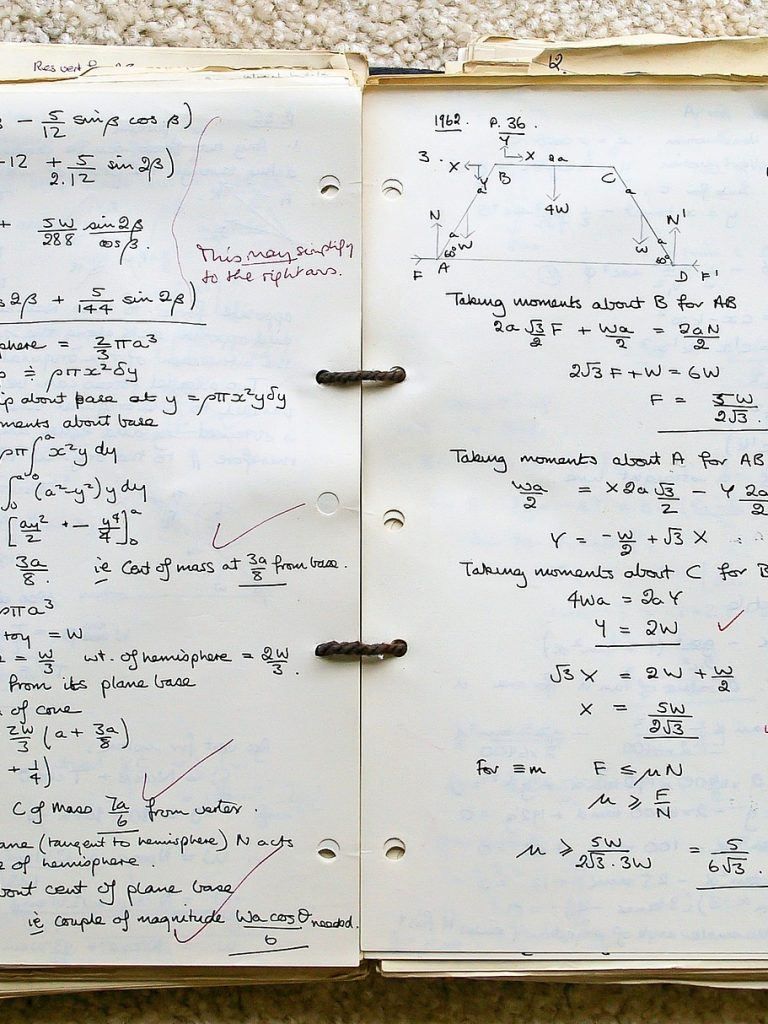 12.
- 5/12 sin β cos β)
-12 + 5/2.12 sin 2β)
+ 5W/288 sin 2β/cos β.
This may simplify
to the right ans.
2β + 5/144 sin 2β)
phere = 2/3 πa³
≑ ρπx²δy
ip about base at y = ρπx²yδy
ments about base
ρπ∫₀ᵃ x²y dy
∫₀ᵃ (a²-y²) y dy
[ay²/2 + - y⁴/4]₀ᵃ
3a/8. ie Cent of mass at 3a/8 from base.
πa³
toy = W
= W/3 wt. of hemisphere = 2W/3.
from its plane base
of cone
2W/3 (a + 3a/8)
+ 1/4)
C of mass 7a/6 from vertex.
ane (tangent to hemisphere) N acts
e of hemisphere.
bout cent of plane base
ie couple of magnitude Wa cos θ/6 needed.
1962. P. 36.
3. X Y X 2a
Y B C
a a
N 4W N'
a W W a
60° 60°
F A D F'
Taking moments about B for AB
2a √3/2 F + Wa/2 = 2aN/2
2√3 F + W = 6W
F = 5W/2√3.
Taking moments about A for AB
Wa/2 = X 2a √3/2 - Y 2a/2
Y = -W/2 + √3 X
Taking moments about C for B
4Wa = 2aY
Y = 2W
√3 X = 2W + W/2
X = 5W/2√3
For ≡m F ≤ μN
μ ≥ F/N
μ ≥ 5W/2√3.3W = 5/6√3.